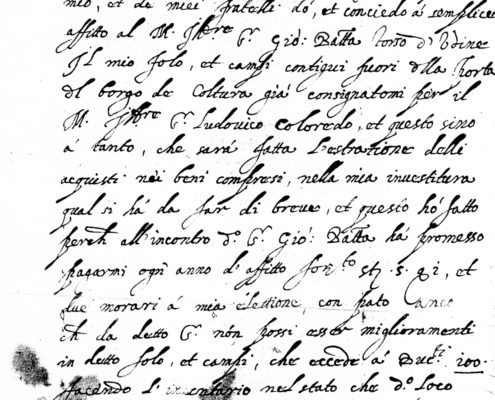 mio, et de miei fratelli do, et conciedo à semplice
affitto al M. Ill:re S:r Giò: Batta Torso d'Udine
Il mio solo, et campi contigui fuori dlla Porta
dl borgo de Coltura già consignatomi per il
M. Ill:re S:r Ludovico Coloredo, et questo sino
à tanto, che sarà fatta l'estratione delli
acquisti nei beni compresi, nella mia investitura
qual si hà da far di breve, et questo hò fatto
perch all'incontro d:o S:r Giò: Batta hà promesso
pagarmi ogni anno d'affitto for:to, et
due morari à mia elettione, con pato anco
ch da detto S:r nòn possi esser miglioramenti
in detto solo, et campi, che eccede à Duc:ti 100.
facendo l'inventario nel stato che d:o loco